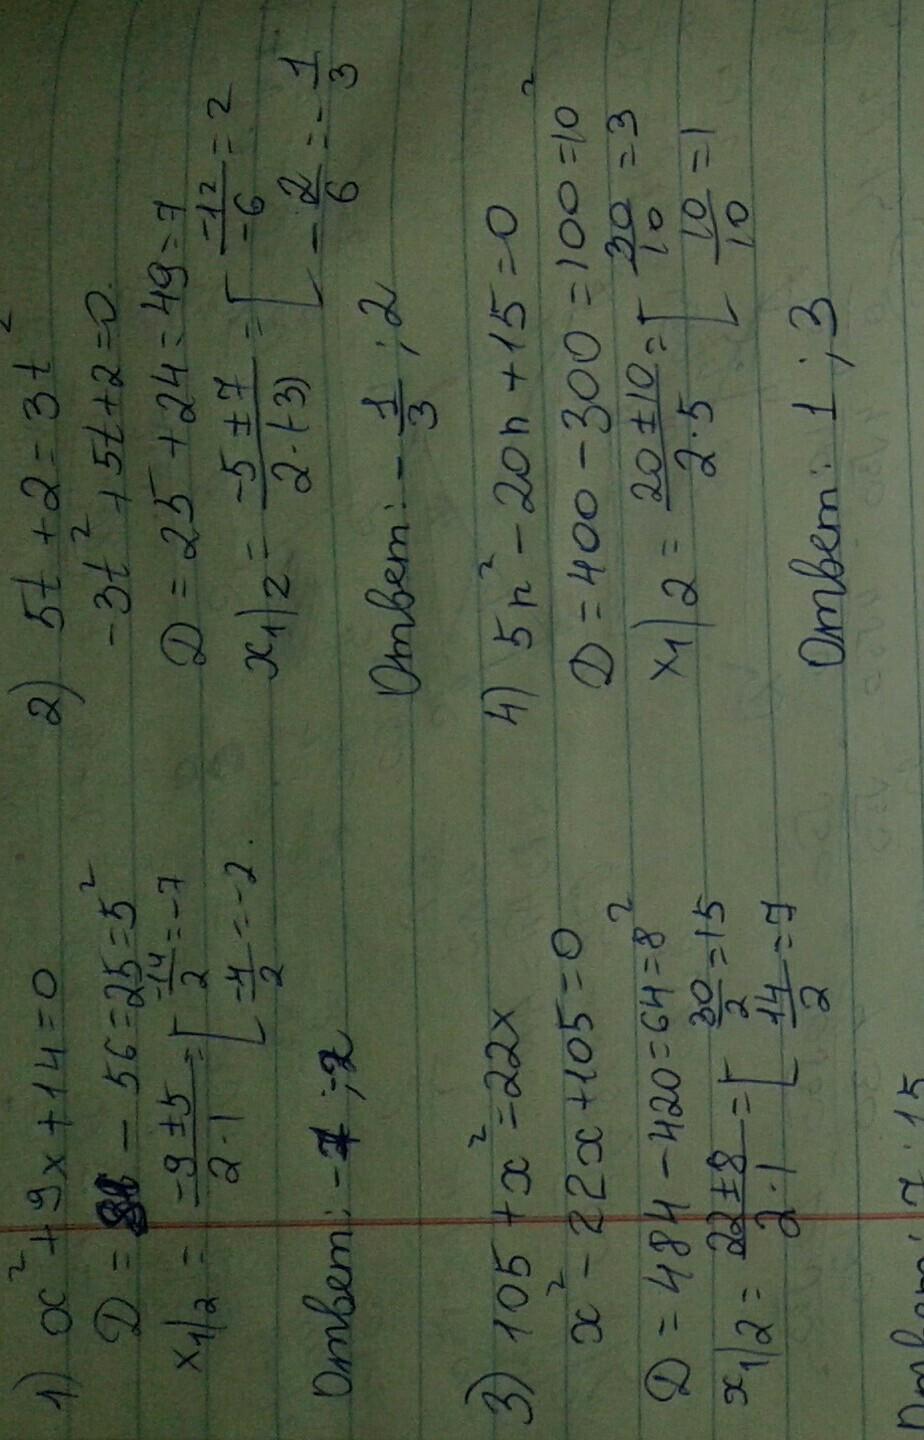 1) x² + 9x + 14 = 0
D = 81 - 56 = 25 = 5²
x1/2 = (-9 ± 5)/(2·1) = [ -14/2 = -7
-4/2 = -2.
Ответ: -7 ; 2
2) 5t + 2 = 3t²
-3t² + 5t + 2 = 0.
D = 25 + 24 = 49 = 7
x1/2 = (-5 ± 7)/(2·(-3)) = [ -12/-6 = 2
-2/6 = -1/3
Ответ: -1/3 ; 2
3) 105 + x² = 22x
x² - 22x + 105 = 0
D = 484 - 420 = 64 = 8²
x1/2 = (22 ± 8)/(2·1) = [ 30/2 = 15
14/2 = 7
Ответ: 7 ; 15
4) 5n² - 20n + 15 = 0
D = 400 - 300 = 100 = 10²
x1/2 = (20 ± 10)/(2·5) = [ 30/10 = 3
10/10 = 1
Ответ: 1 ; 3